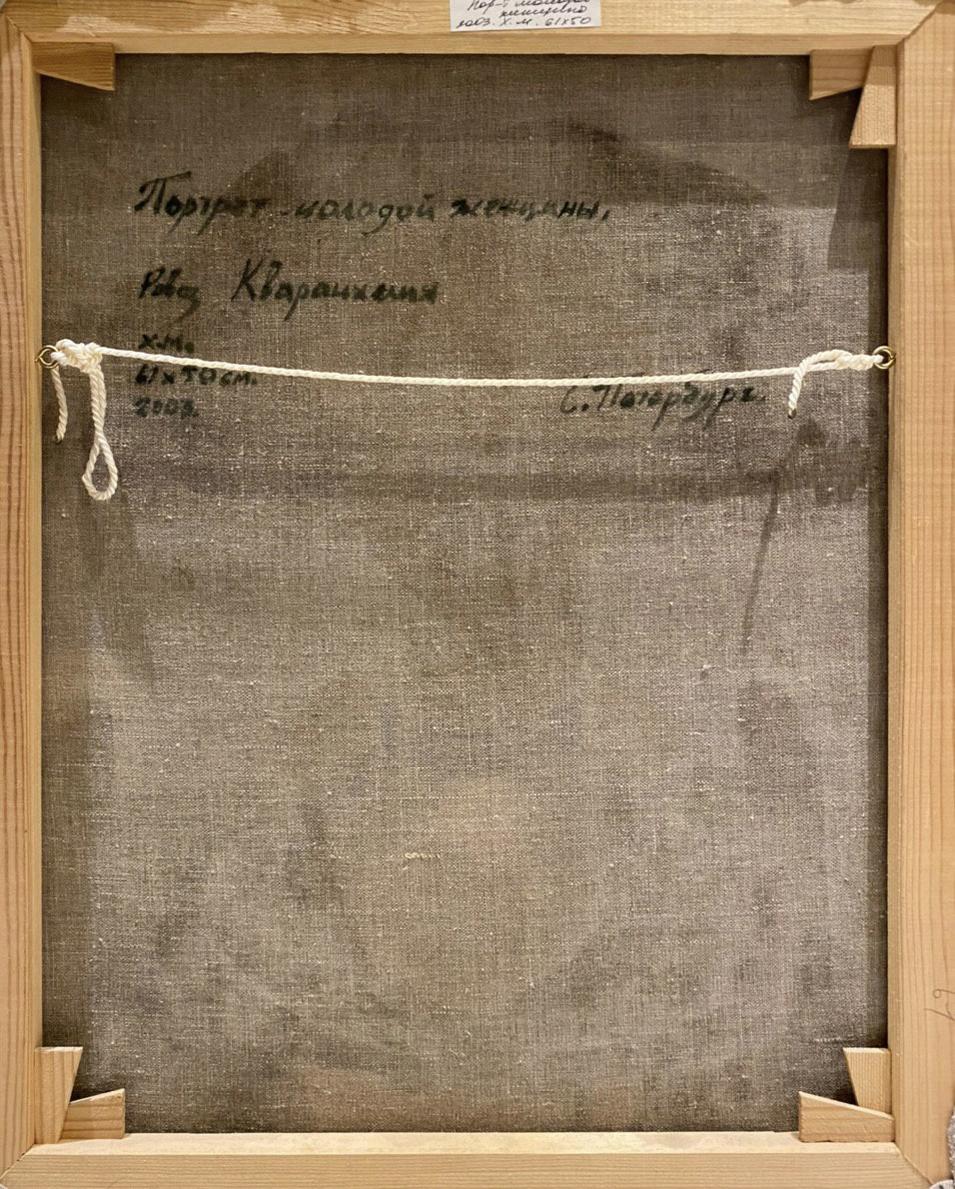 Пор-т молодой
женщины
2003. Х.М. 61х50
Портрет молодой женщины,
Кваранхелия
х.м.
61х50 см.
2003.
С. Петербург.